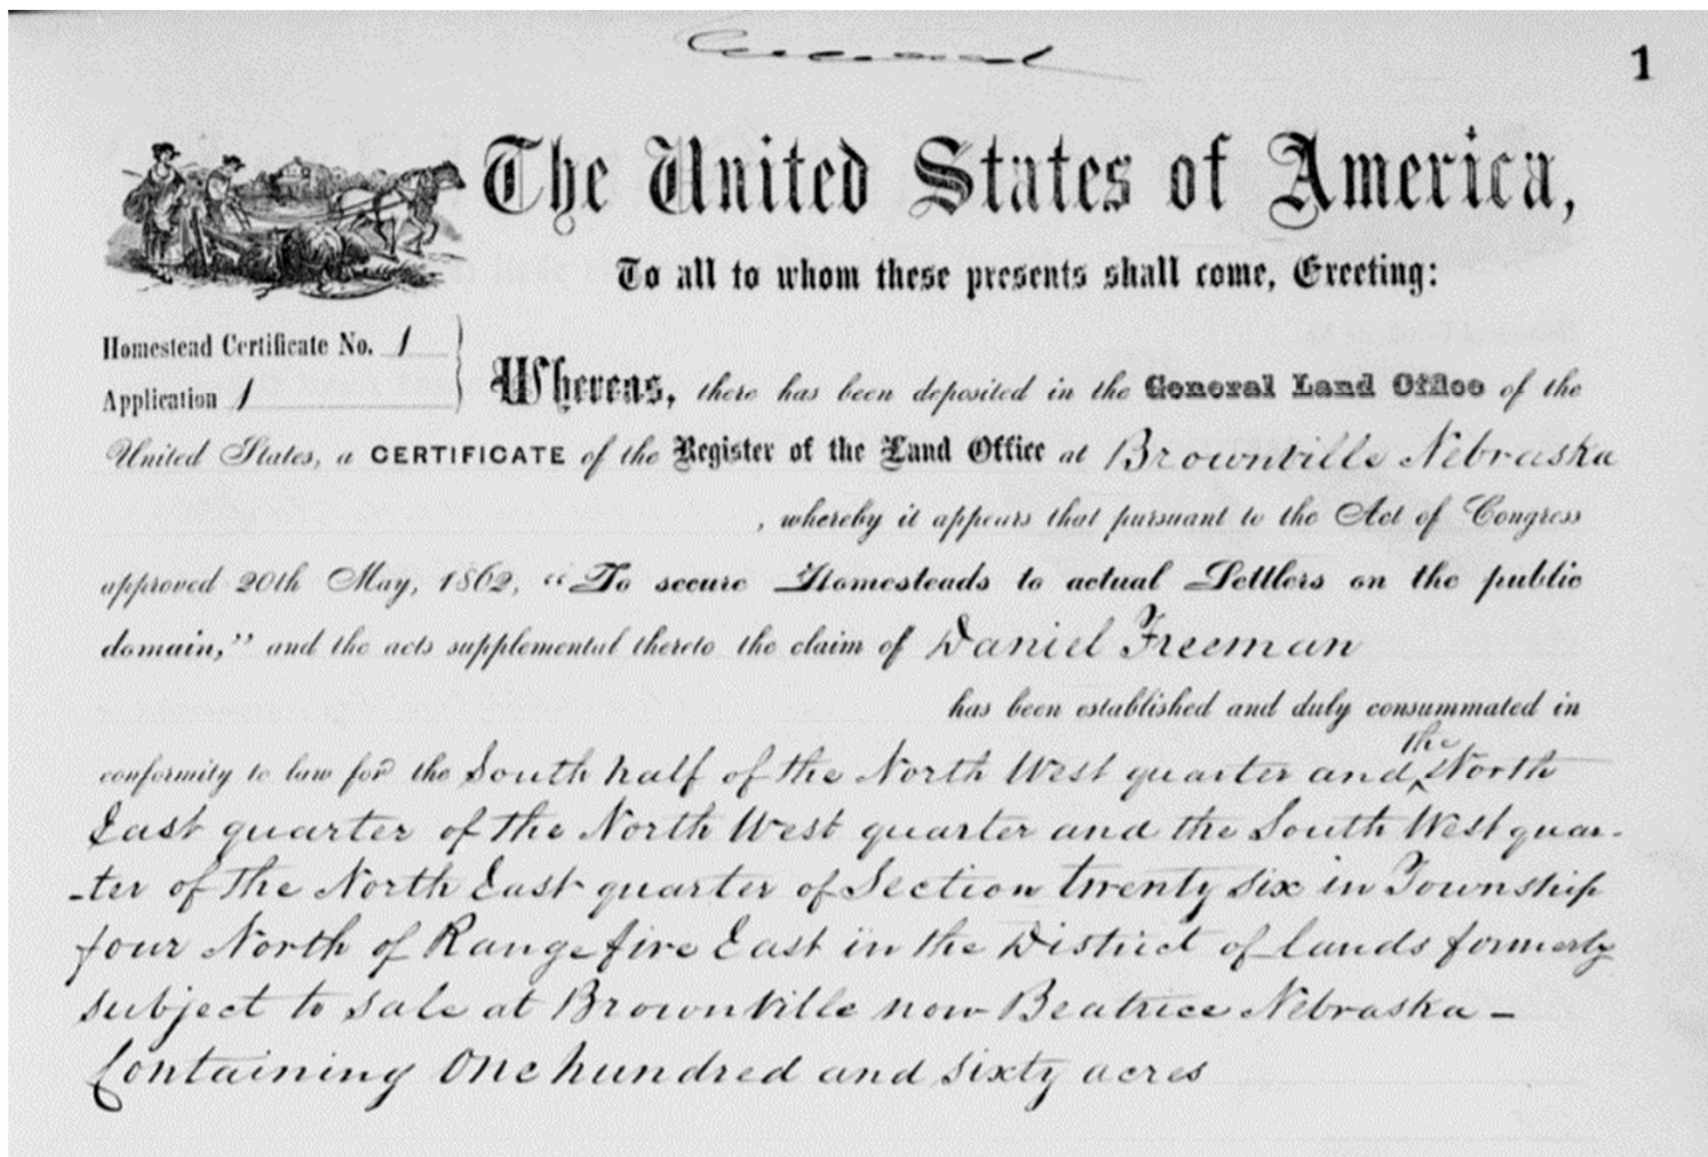 1
The United States of America,
To all to whom these presents shall come, Greeting:
Homestead Certificate No. 1
Application 1
Whereas, there has been deposited in the General Land Office of the
United States, a CERTIFICATE of the Register of the Land Office at Brownville Nebraska
, whereby it appears that pursuant to the Act of Congress
approved 20th May, 1862, “To secure Homesteads to actual Settlers on the public
domain,” and the acts supplemental thereto the claim of Daniel Freeman
has been established and duly consummated in
the
conformity to law for the South half of the North West quarter and North
East quarter of the North West quarter and the South West quar-
-ter of the North East quarter of Section twenty six in Township
four North of Range five East in the District of lands formerly
subject to sale at Brownville now Beatrice Nebraska –
Containing One hundred and sixty acres